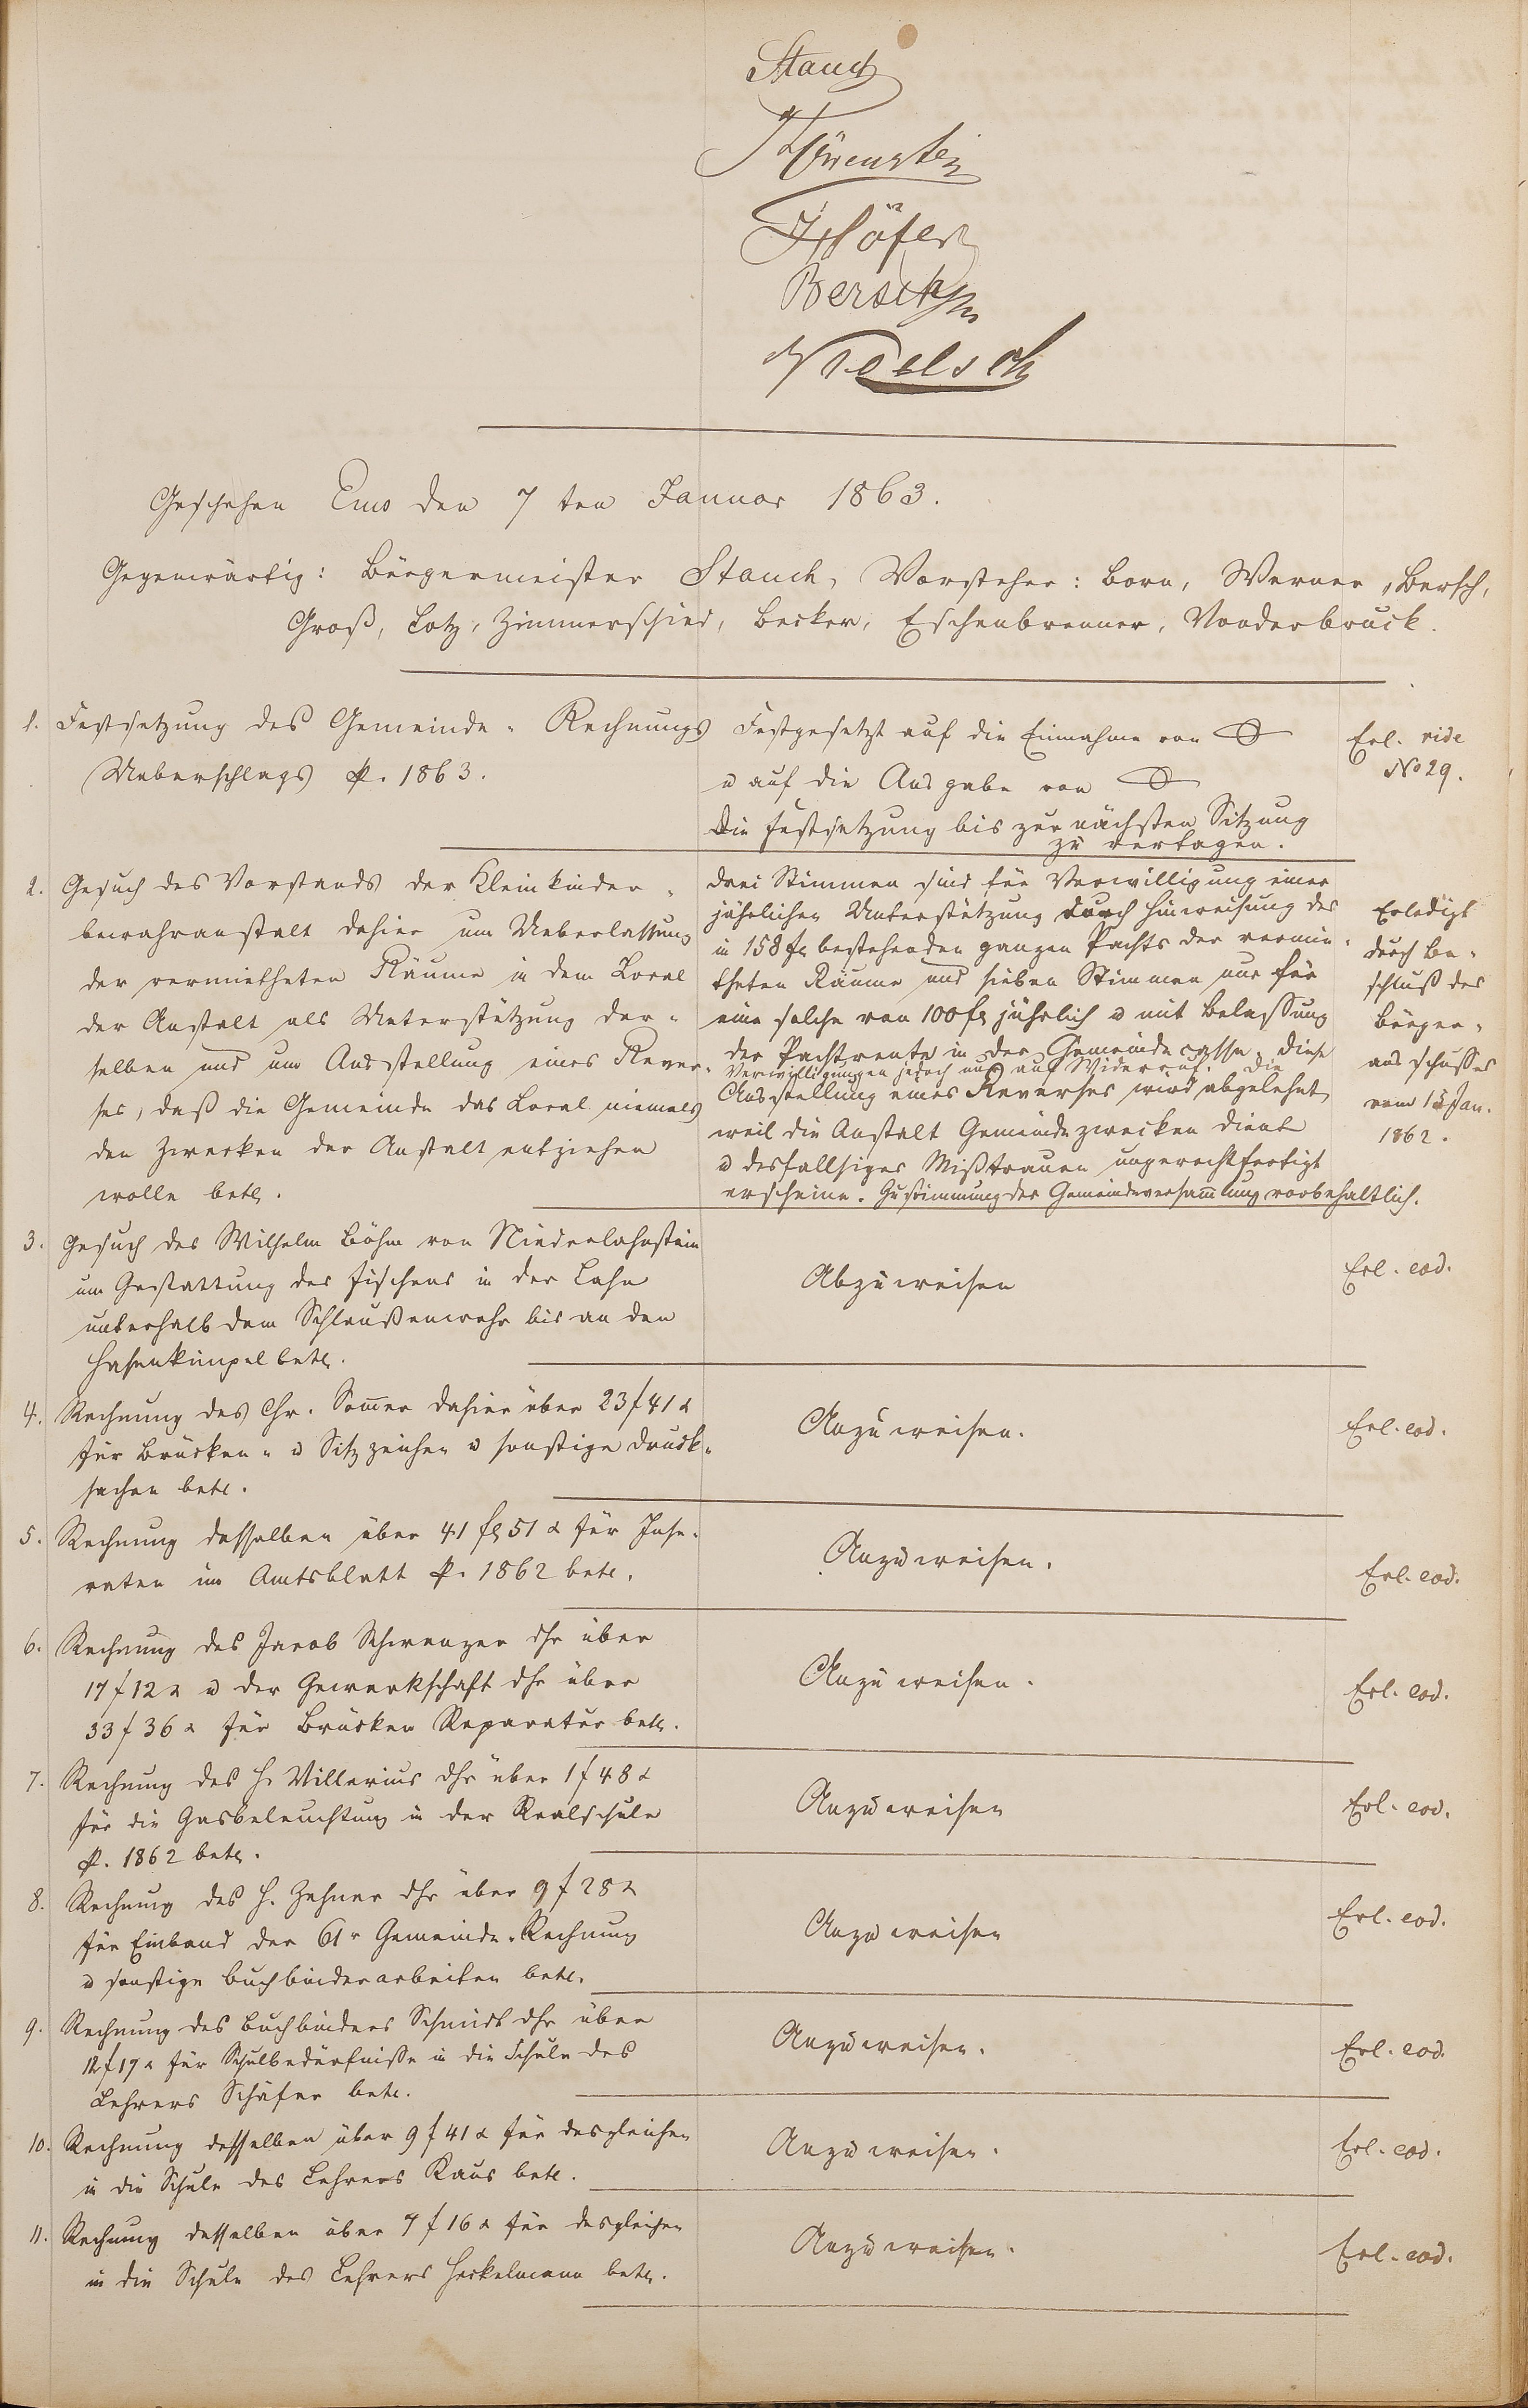 Stauch
Thörenstein
Höfer
Bersch
Geschehen Ems den 7ten Januar 1863.
Gegenwärtig: Bürgermeister Stauch, Vorsteher: Born, Werner, Bersch,
Groß, Lotz, Zimmerschied, Becker, Eschenbrenner, Vonderbruck.
1. Festsetzung des Gemeinde-Rechnungs
Ueberschlags p. 1863.
Festgesetzt auf die Einnahme von
u auf die Ausgabe von
Die Festsetzung bis zur nächsten Sitzung
zu vertagen.
Erl. vide
No 29.
2. Gesuch des Vorstands der Kleinkinder-
bewahranstalt dahier um Ueberlassung
der vermietheten Räume in dem Local
der Anstalt als Unterstützung der-
selben und um Ausstellung eines Rever-
ses, daß die Gemeinde das Local niemals
den Zwecken der Anstalt entziehen
wolle betr.
Drei Stimmen sind für Verwilligung einer
jährlichen Unterstützung durch Hinweisung des
in 158 fl bestehenden ganzen Pachts der vermie-
theten Räume und sieben Stimmen nur für
eine solche von 100 fl jährlich u mit Belassung
der Pachtrente in der Gemeindecasse, diese
Verwilligungen jedoch nur auf Widerruf. Die
Ausstellung eines Reverses wird abgelehnt,
weil die Anstalt Gemeindezwecken diente
u desfallsiges Mißtrauen ungerechtfertigt
erscheine. Zustimmung der Gemeindeversammlung vorbehaltlich.
Erledigt
durch Be-
schluß des
Bürger-
ausschusses
vom 15 Jan.
1862.
3. Gesuch des Wilhelm Böhm von Niederlahnstein
um Gestattung des Fischens in der Lahn
unterhalb dem Schleußenwehr bis an den
Hasenkümpel betr.
Abzuweisen
Erl. eod.
4. Rechnung des Chr. Sommer dahier über 23 f 41 x
für Brücken- u Sitzzeichen u sonstige Druck-
sachen betr.
Anzuweisen.
Erl. eod.
5. Rechnung desselben über 41 fl 51 x für Inse-
raten im Amtsblatt p. 1862 betr.
Anzuweisen.
Erl. eod.
6. Rechnung des Jacob Schwenzer dhr über
17 f 12 x u der Gewerkschaft dhr über
33 f 36 x für Brücken Reparatur betr.
Anzuweisen.
Erl. eod.
7. Rechnung des H. Villarius dhr über 1 f 48 x
für die Gasbeleuchtung in der Realschule
p. 1862 betr.
Anzuweisen
Erl. eod.
8. Rechnung des H. Zehner dhr über 9 f 28 x
für Einband der 61r Gemeinde-Rechnung
u sonstige Buchbinderarbeiten betr.
Anzuweisen
Erl. eod.
9. Rechnung des Buchbinders Schmidt dhr über
12 f 17 x für Schulbedürfnisse in die Schule des
Lehrers Schäfer betr.
Anzuweisen.
Erl. eod.
10. Rechnung desselben über 9 f 41 x für desgleichen
in die Schule des Lehrers Kaus betr.
Anzuweisen.
Erl. eod.
11. Rechnung desselben über 7 f 16 x für desgleichen
in die Schule des Lehrers Heckelmann betr.
Anzuweisen.
Erl. eod.